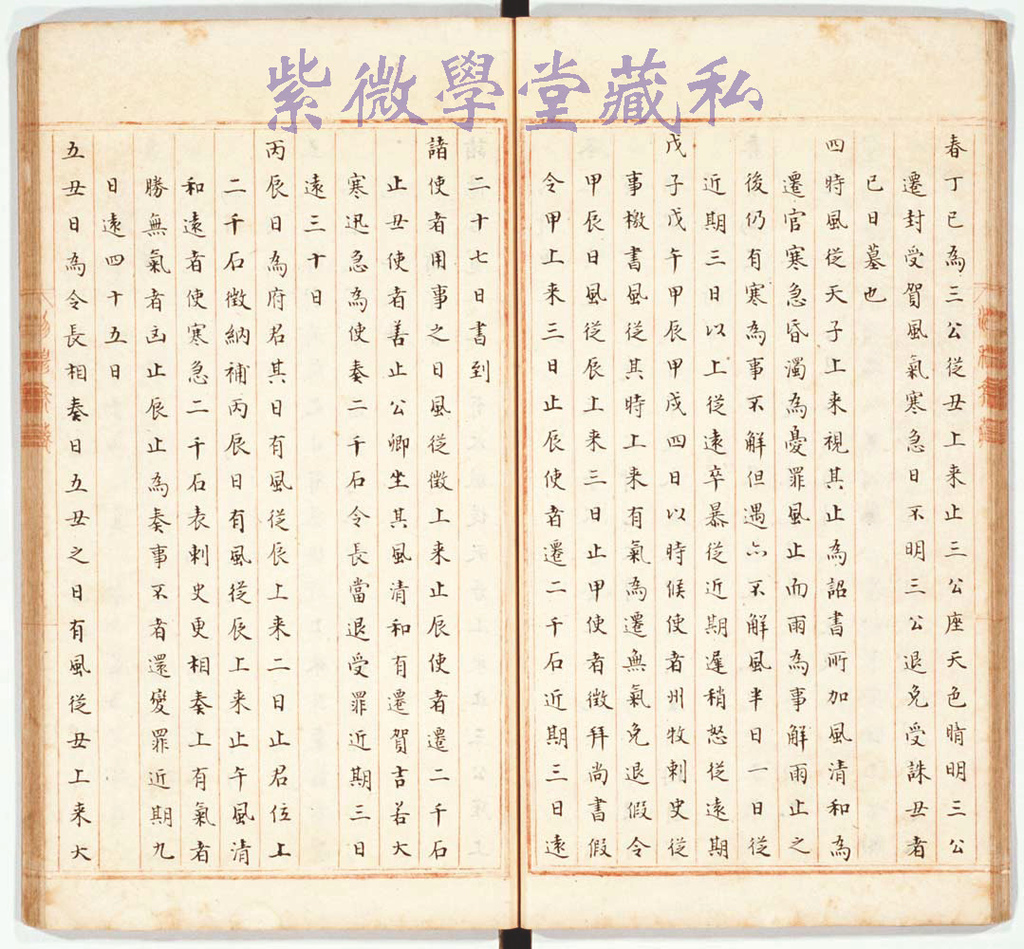 紫微學堂藏私
春丁巳為三公從丑上来止三公座天色晴明三公
遷封受賀風氣寒急日不明三公退免受誅丑者
巳日墓也
四時風從天子上来視其止為詔書所加風清和為
遷官寒急昏濁為憂罪風止而雨為事解雨止之
後仍有寒為事不解但遇亦不解風半日一日從
近期三日以上從遠卒暴從近期遲稍怒從遠期
戊子戊午甲辰甲戌四日以時候使者州牧刺史從
事檄書風從其時上来有氣為遷無氣免退假令
甲辰日風從辰上来三日止甲使者徵拜尚書假
令甲上来三日止辰使者遷二千石近期三日遠
二十七日書到
諸使者用事之日風從徵上来止辰使者遷二千石
止丑使者善止公卿坐其風清和有遷賀吉若大
寒迅急為使奏二千石令長當退受罪近期三日
遠三十日
丙辰日為府君其日有風從辰上来二日止君位上
二千石徵納補丙辰日有風從辰上来止午風清
和遠者使寒急二千石表刺史更相奏上有氣者
勝無氣者凶止辰止為奏事不者還變罪近期九
日遠四十五日
五丑日為令長相奏日五丑之日有風從丑上来大